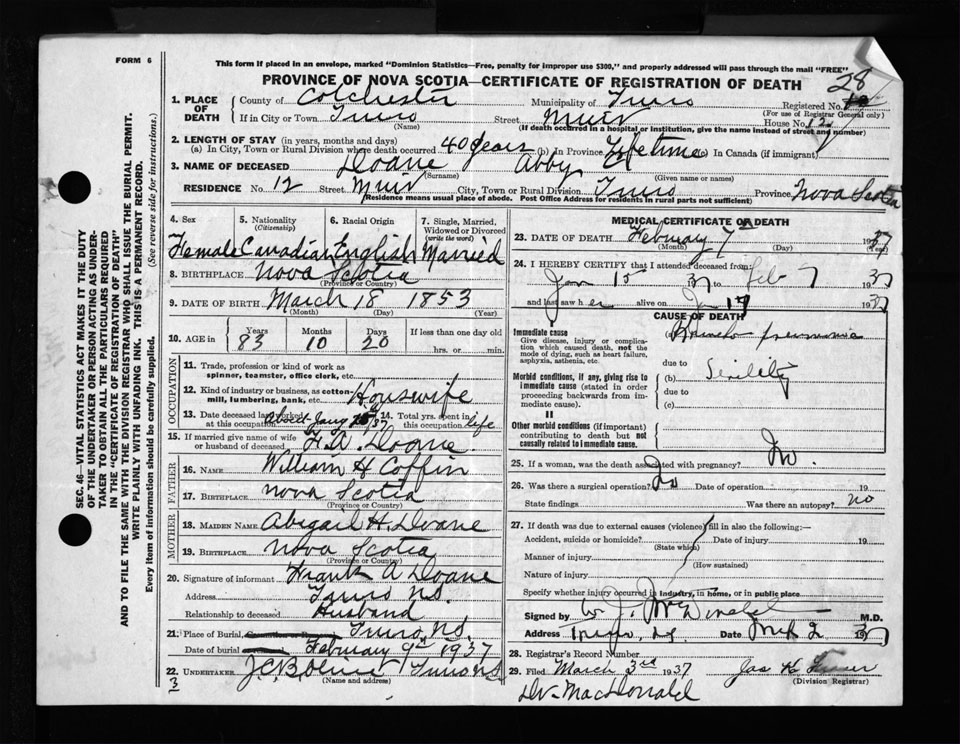 FORM 6
This form if placed in an envelope, marked "Dominion Statistics—Free, penalty for improper use $300," and properly addressed will pass through the mail "FREE"
PROVINCE OF NOVA SCOTIA—CERTIFICATE OF REGISTRATION OF DEATH
28
1. PLACE OF DEATH County of Colchester Municipality of Truro Registered No.
(For use of Registrar General only)
If in City or Town Truro Street Muir House No. 12
(Name) (If death occurred in a hospital or institution, give the name instead of street and number)
2. LENGTH OF STAY (in years, months and days)
(a) In City, Town or Rural Division where death occurred 40 years (b) In Province Lifetime (c) In Canada (if immigrant)
3. NAME OF DECEASED Doane Abby
(Surname) (Given name or names)
RESIDENCE No. 12 Street Muir City, Town or Rural Division Truro Province Nova Scotia
(Residence means usual place of abode. Post Office Address for residents in rural parts not sufficient)
4. Sex 5. Nationality (Citizenship) 6. Racial Origin 7. Single, Married, Widowed or Divorced (write the word)
Female Canadian English Married
8. BIRTHPLACE Nova Scotia
(Province or Country)
9. DATE OF BIRTH March 18 1853
(Month) (Day) (Year)
10. AGE in Years Months Days If less than one day old
83 10 20 hrs. or min.
OCCUPATION
11. Trade, profession or kind of work as spinner, teamster, office clerk, etc.
12. Kind of industry or business, as cotton-mill, lumbering, bank, etc. Housewife
13. Date deceased last worked at this occupation About Jany 15 37 14. Total yrs. spent in this occupation life
15. If married give name of wife or husband of deceased F. A. Doane
FATHER
16. NAME William H Coffin
17. BIRTHPLACE Nova Scotia
(Province or Country)
MOTHER
18. MAIDEN NAME Abigail H. Doane
19. BIRTHPLACE Nova Scotia
(Province or Country)
20. Signature of informant Frank A Doane
Address Truro N.S.
Relationship to deceased Husband
21. Place of Burial, Cremation or Removal Truro, N.S.
Date of burial February 9th 1937
22. UNDERTAKER Truro N.S.
(Name and address)
3
MEDICAL CERTIFICATE OF DEATH
23. DATE OF DEATH February 7th 1937
(Month) (Day) (Year)
24. I HEREBY CERTIFY that I attended deceased from:
Jan 15 37 to Feb 7 1937
and last saw h er alive on Jan 1937
CAUSE OF DEATH
Immediate cause (a) Broncho pneumonia
Give disease, injury or complication which caused death, not the mode of dying, such as heart failure, asphyxia, asthenia, etc.
due to
Morbid conditions, if any, giving rise to immediate cause (stated in order proceeding backwards from immediate cause). (b) Senility
due to
(c)
II
Other morbid conditions (if important) contributing to death but not causally related to immediate cause.
25. If a woman, was the death associated with pregnancy? No.
26. Was there a surgical operation? No Date of operation 19
State findings Was there an autopsy? no
27. If death was due to external causes (violence) fill in also the following:—
Accident, suicide or homicide? Date of injury 19
(State which)
Manner of injury
(How sustained)
Nature of injury
Specify whether injury occurred in industry, in home, or in public place
Signed by M.D.
Address Truro, N.S. Date 1937
28. Registrar's Record Number
29. Filed March 3rd 1937 Jas
(Division Registrar)
Dr. MacDonald
SEC. 46—VITAL STATISTICS ACT MAKES IT THE DUTY
OF THE UNDERTAKER OR PERSON ACTING AS UNDER-
TAKER TO OBTAIN ALL THE PARTICULARS REQUIRED
IN THE "CERTIFICATE OF REGISTRATION OF DEATH"
AND TO FILE THE SAME WITH THE DIVISION REGISTRAR WHO SHALL ISSUE THE BURIAL PERMIT.
WRITE PLAINLY WITH UNFADING INK. THIS IS A PERMANENT RECORD.
Every item of information should be carefully supplied. (See reverse side for instructions.)